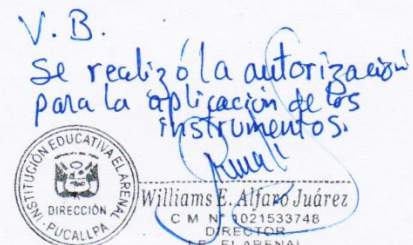 V. B.
Se realizó la autorización
para la aplicación de los
instrumentos.
INSTITUCIÓN EDUCATIVA EL ARENAL
DIRECCIÓN
PUCALLPA
Williams E. Alfaro Juárez
C M N° 1021533748
DIRECTOR
I.E. EL ARENAL